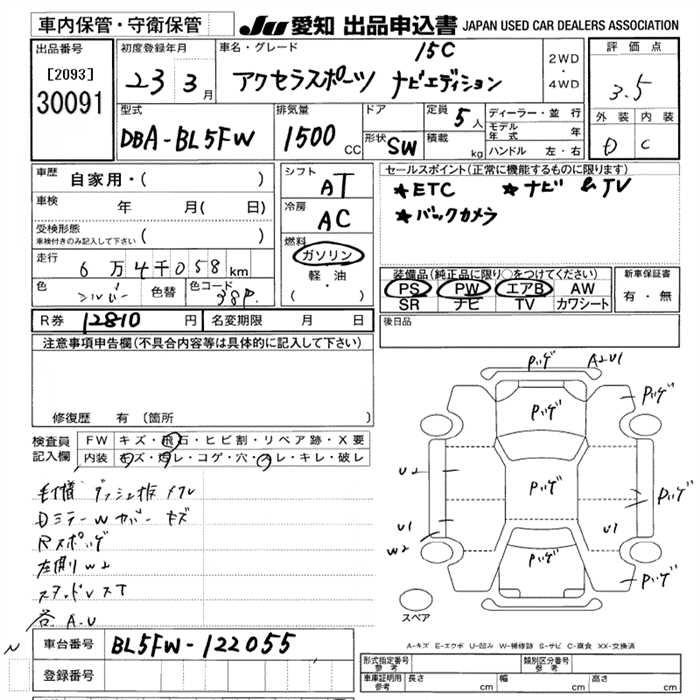 車内保管・守衛保管
JU 愛知 出品申込書 JAPAN USED CAR DEALERS ASSOCIATION
出品番号
[2093]
30091
初度登録年月
23 3月
車名・グレード
15C
アクセラスポーツ ナビエディション
2WD
・
4WD
評価点
3.5
外装 内装
D C
型式
DBA-BL5FW
排気量
1500 CC
ドア
形状 SW
定員 5 人
積載 kg
ディーラー・並行
モデル年式 年
ハンドル 左・右
車歴 自家用・( )
車検 年 月( 日)
受検形態
車検付きのみ記入して下さい ( )
走行 6万4千058km
色 シルバー
色替
色コード 38P
シフト
AT
冷房
AC
燃料
ガソリン
軽油
( ・ )
セールスポイント(正常に機能するものに限ります)
★ETC ★ナビ &TV
★バックカメラ
装備品(純正品に限り○をつけてください)
PS PW エアB AW
SR ナビ TV カワシート
新車保証書
有・無
R券 12810 円 名変期限 月 日
後日品
注意事項申告欄(不具合内容等は具体的に記入して下さい)
修復歴 有 (箇所 )
検査員記入欄
FW キズ・飛石・ヒビ割・リペア跡・X要
内装 キズ・汚レ・コゲ・穴・スレ・キレ・破レ
Dミラーwカバー キズ
Rスポハゲ
左側リw2
各 A.U
Pハゲ A2U1
Pハゲ Pハゲ
U2 Pハゲ Pハゲ
U1 U1
W2
Pハゲ Pハゲ
スペア
A-キズ E-エクボ U-凹み W-補修跡 S-サビ C-腐食 XX-交換済
車台番号 BL5FW-122055
登録番号
形式指定番号 参考
類別区分番号 参考
車庫証明用 参考 長さ cm 幅 cm 高さ cm